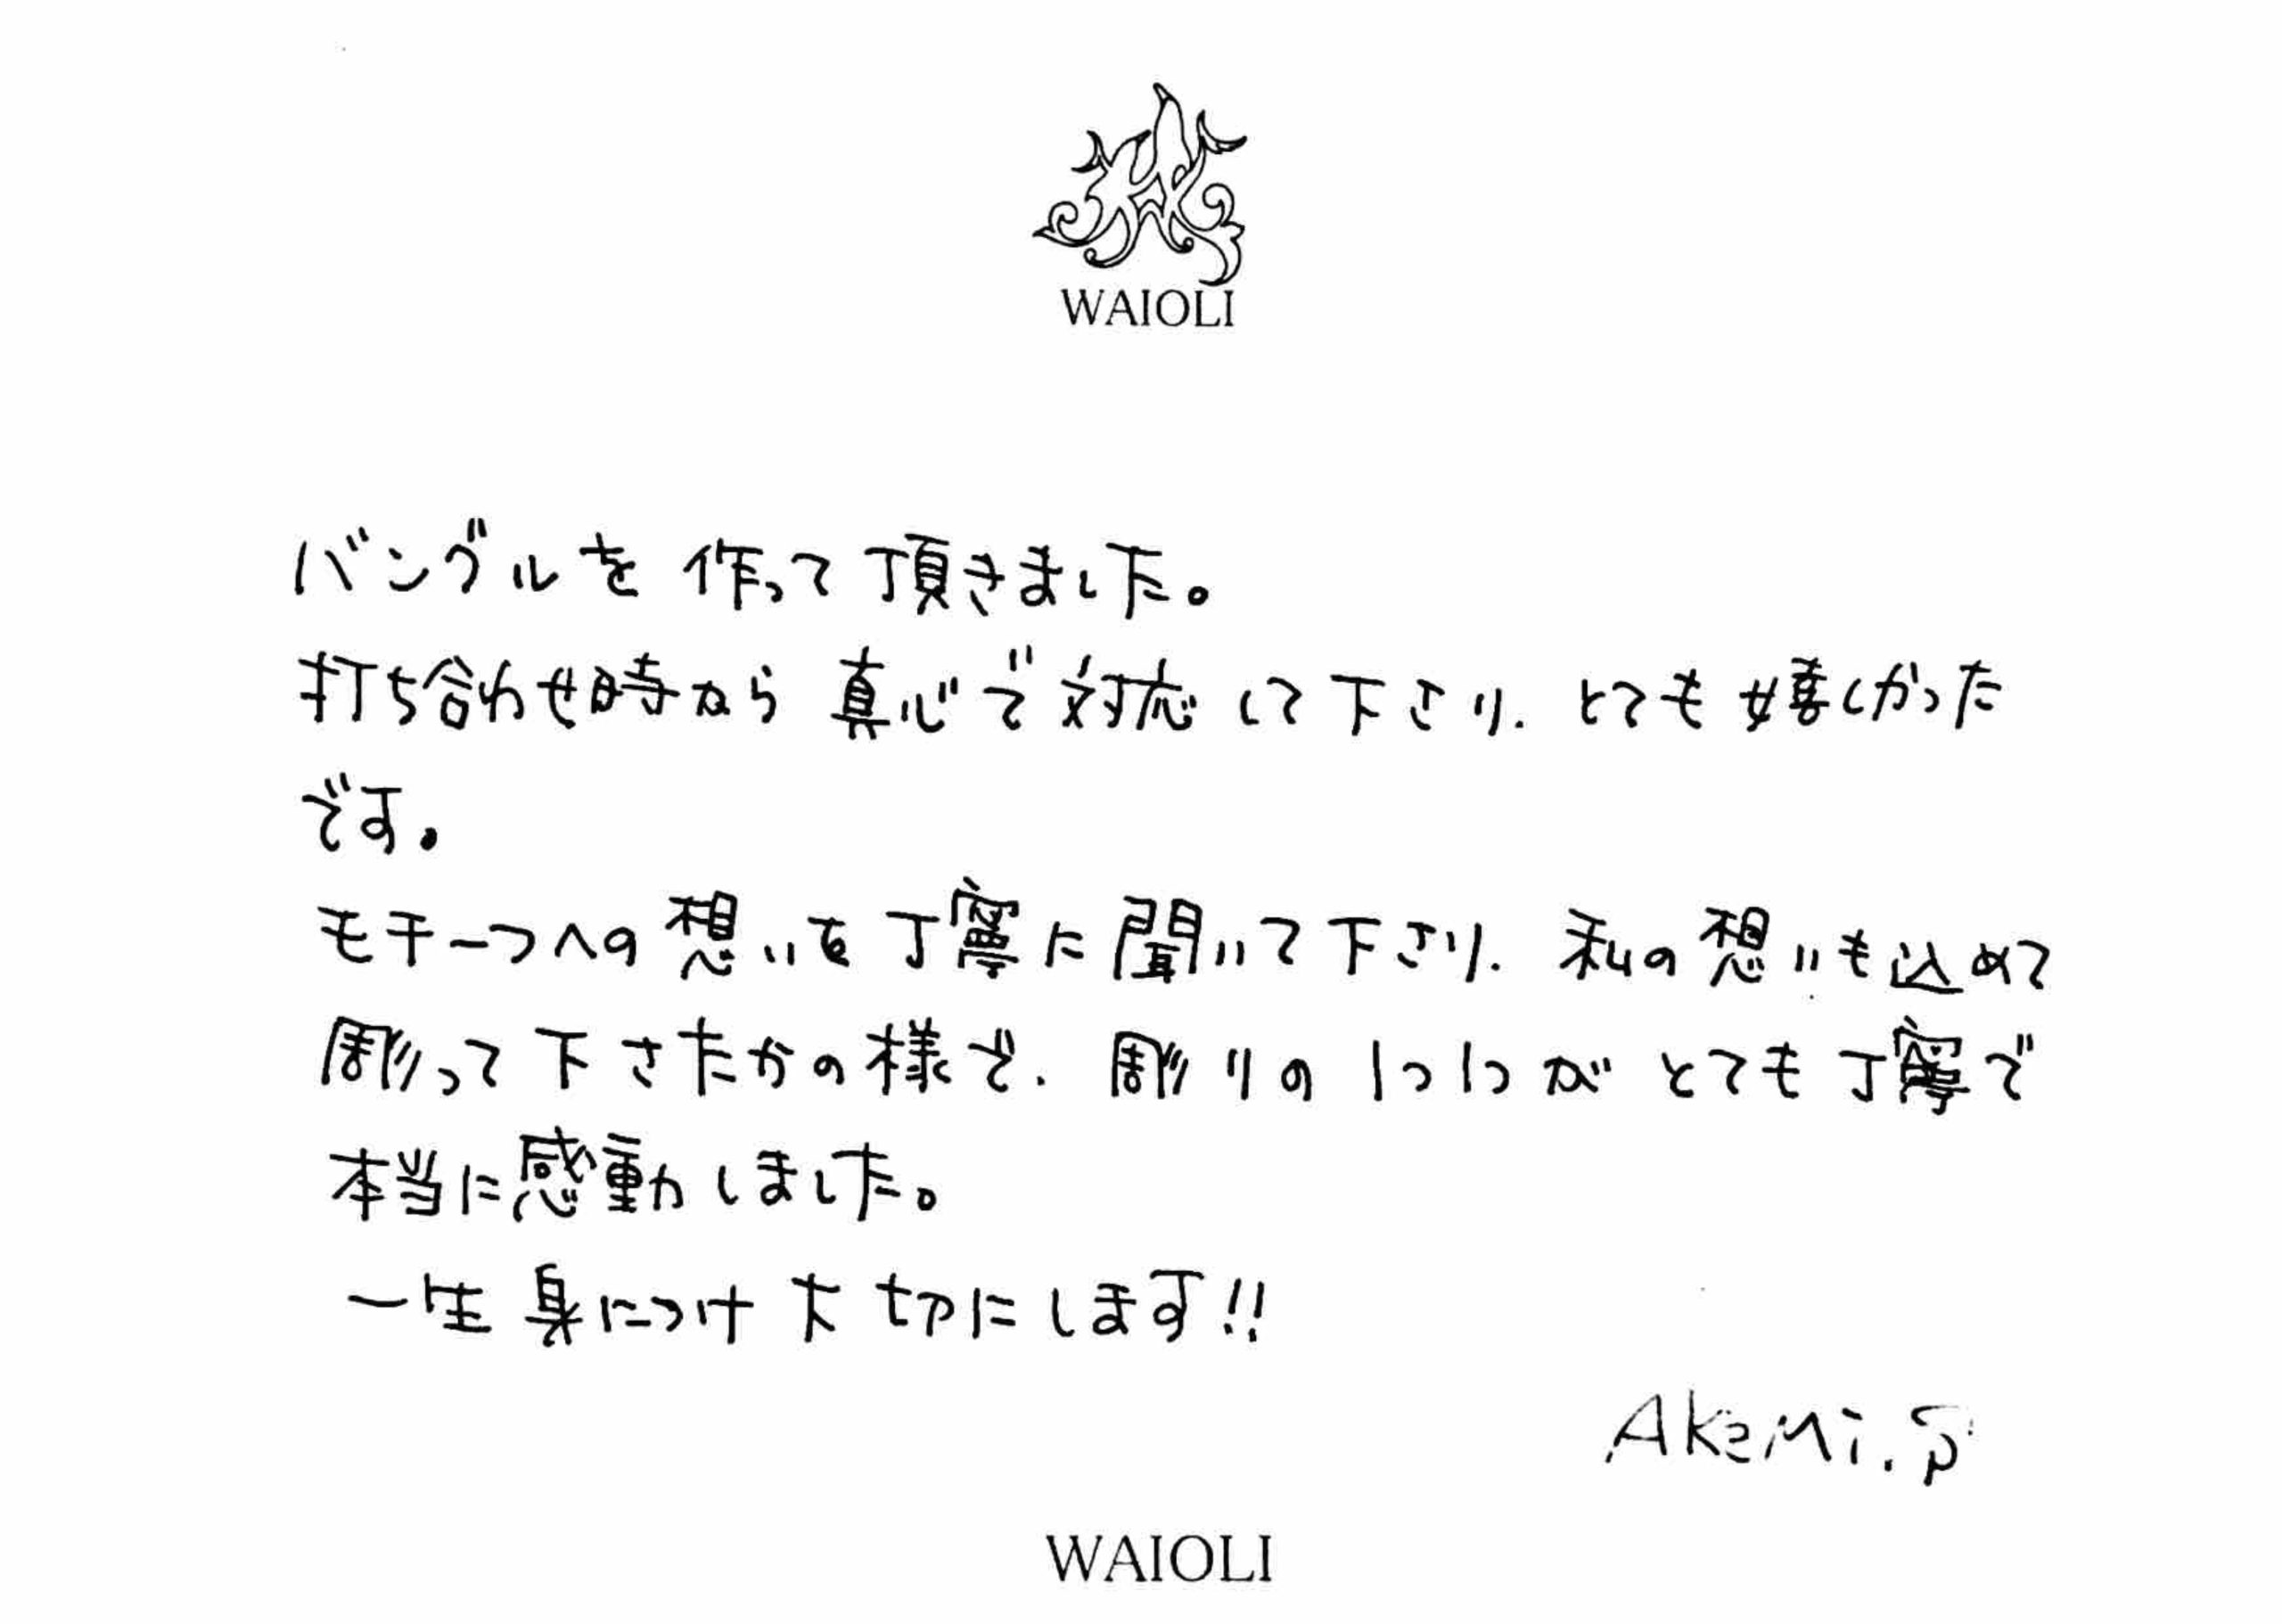 WAIOLI
バングルを作って頂きました。
打ち合わせ時から真心で対応して下さり、とても嬉しかった
です。
モチーフへの想いを丁寧に聞いて下さり、私の想いも込めて
彫って下さたかの様で、彫りの1つ1つがとても丁寧で
本当に感動しました。
一生身につけ大切にします!!
Akemi.S
WAIOLI